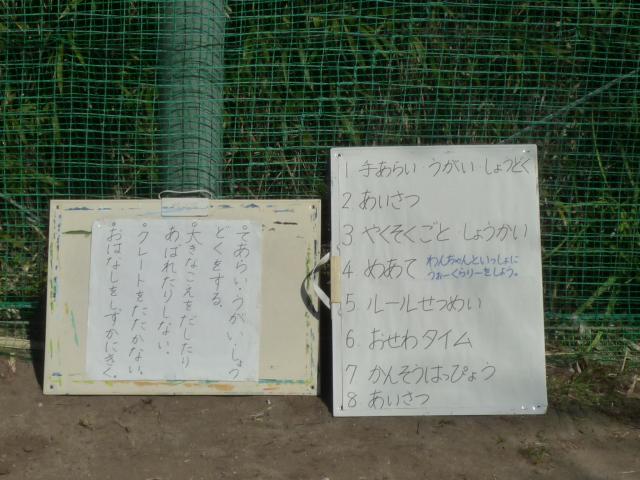 °てあらい・うがい・しょう
どくをする。
°大きなこえをだしたり
あばれたりしない。
°クレートをたたかない。
°おはなしをしずかにきく。
1 手あらい うがい しょうどく
2 あいさつ
3 やくそくごと しょうかい
4 めあて わんちゃんといっしょに
うぉーくらりーをしよう。
5 ルールせつめい
6 おせわタイム
7 かんそうはっぴょう
8 あいさつ